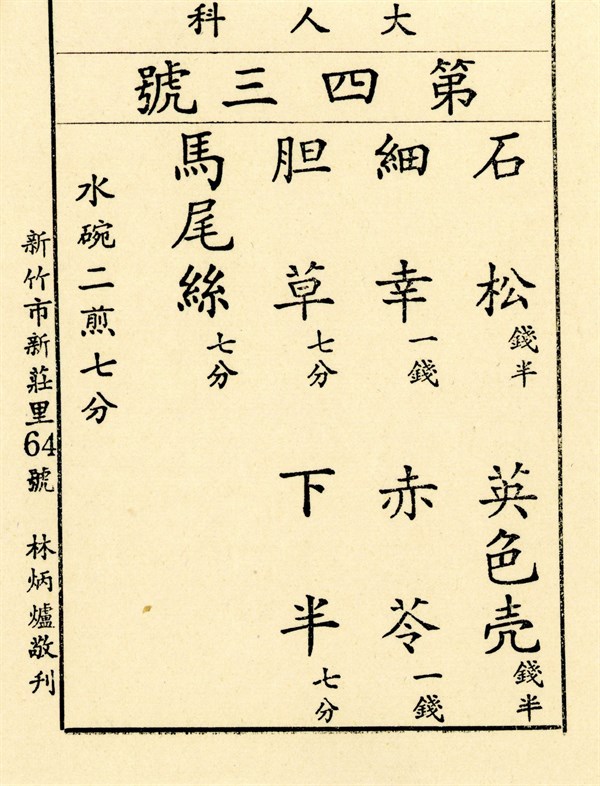 大人科
第四三號
石松 錢半 英色壳 錢半
細幸 一錢 赤苓 一錢
胆草 七分 下半 七分
馬尾絲 七分
水碗二煎七分
新竹市新莊里64號 林炳爐敬刊